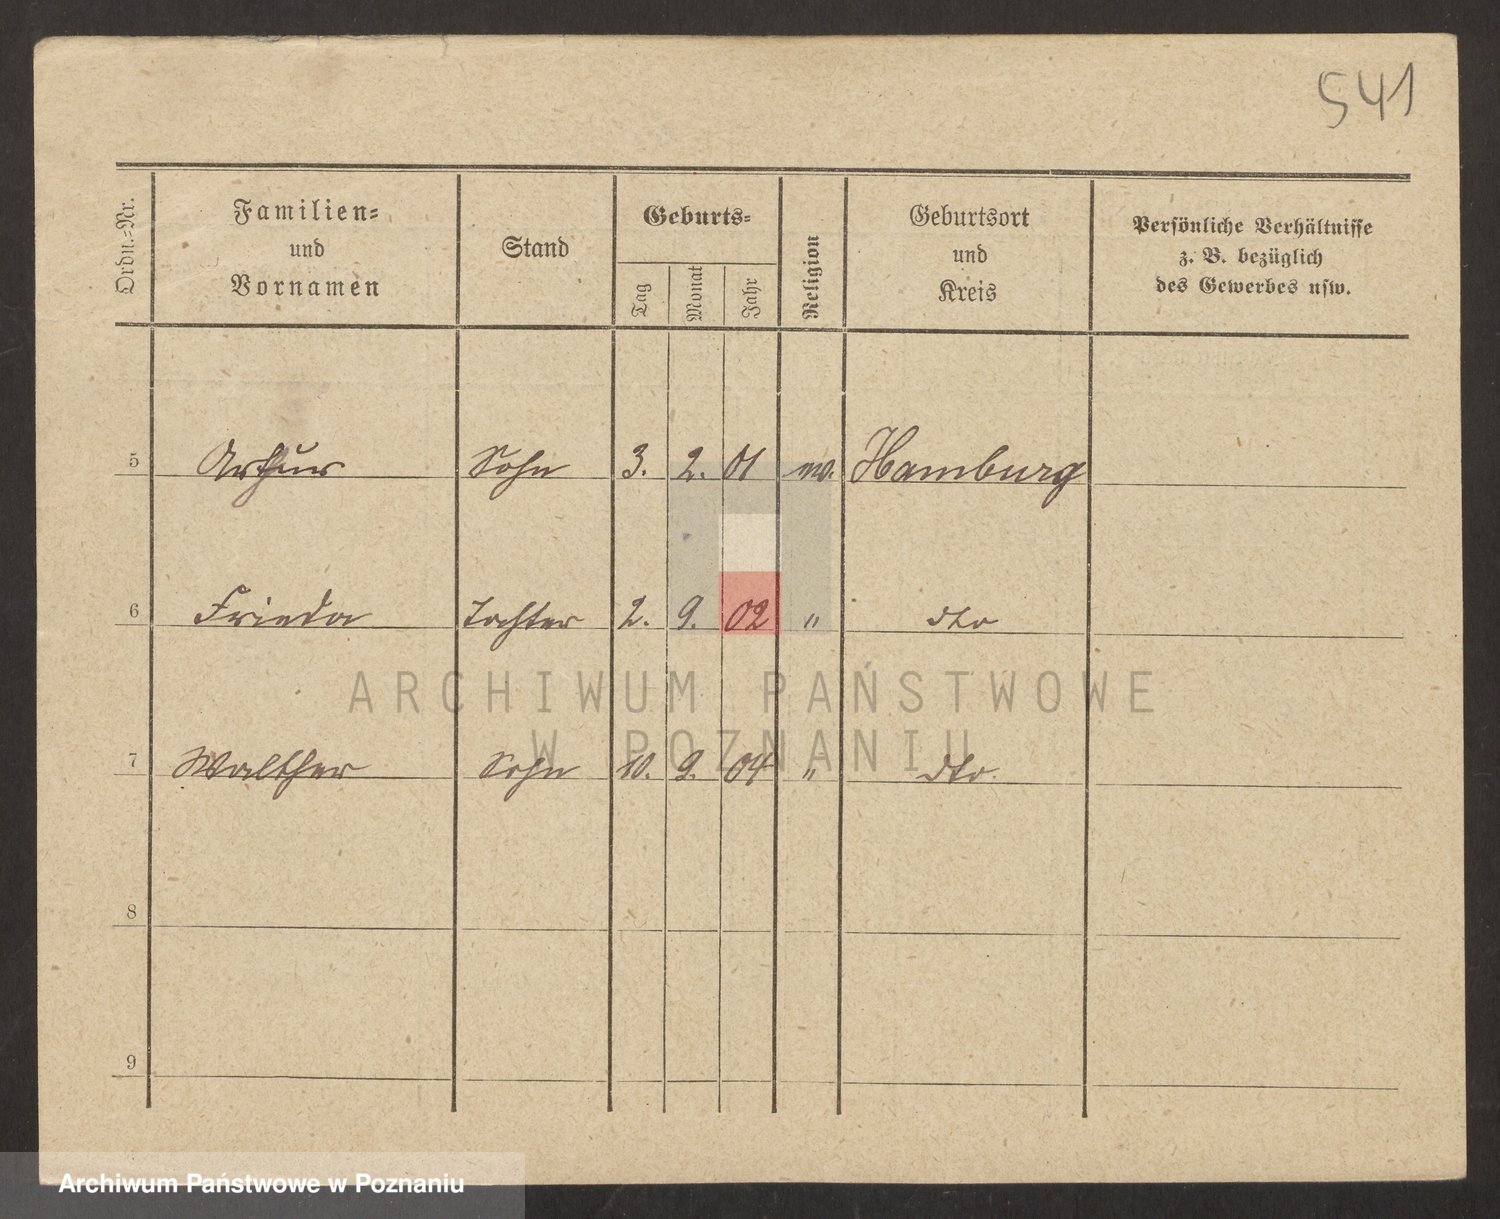 541
Ordn.-Nr.
Familien-
und
Vornamen
Stand
Geburts-
Tag
Monat
Jahr
Religion
Geburtsort
und
Kreis
Persönliche Verhältnisse
z. B. bezüglich
des Gewerbes usw.
5 Arthur Sohn 3. 2. 01 Hamburg
6 Frieda Tochter 2. 9. 02 " dto
7 Walther Sohn 10. 9. 04 " dto.
8
9
ARCHIWUM PAŃSTWOWE
W POZNANIU
Archiwum Państwowe w Poznaniu